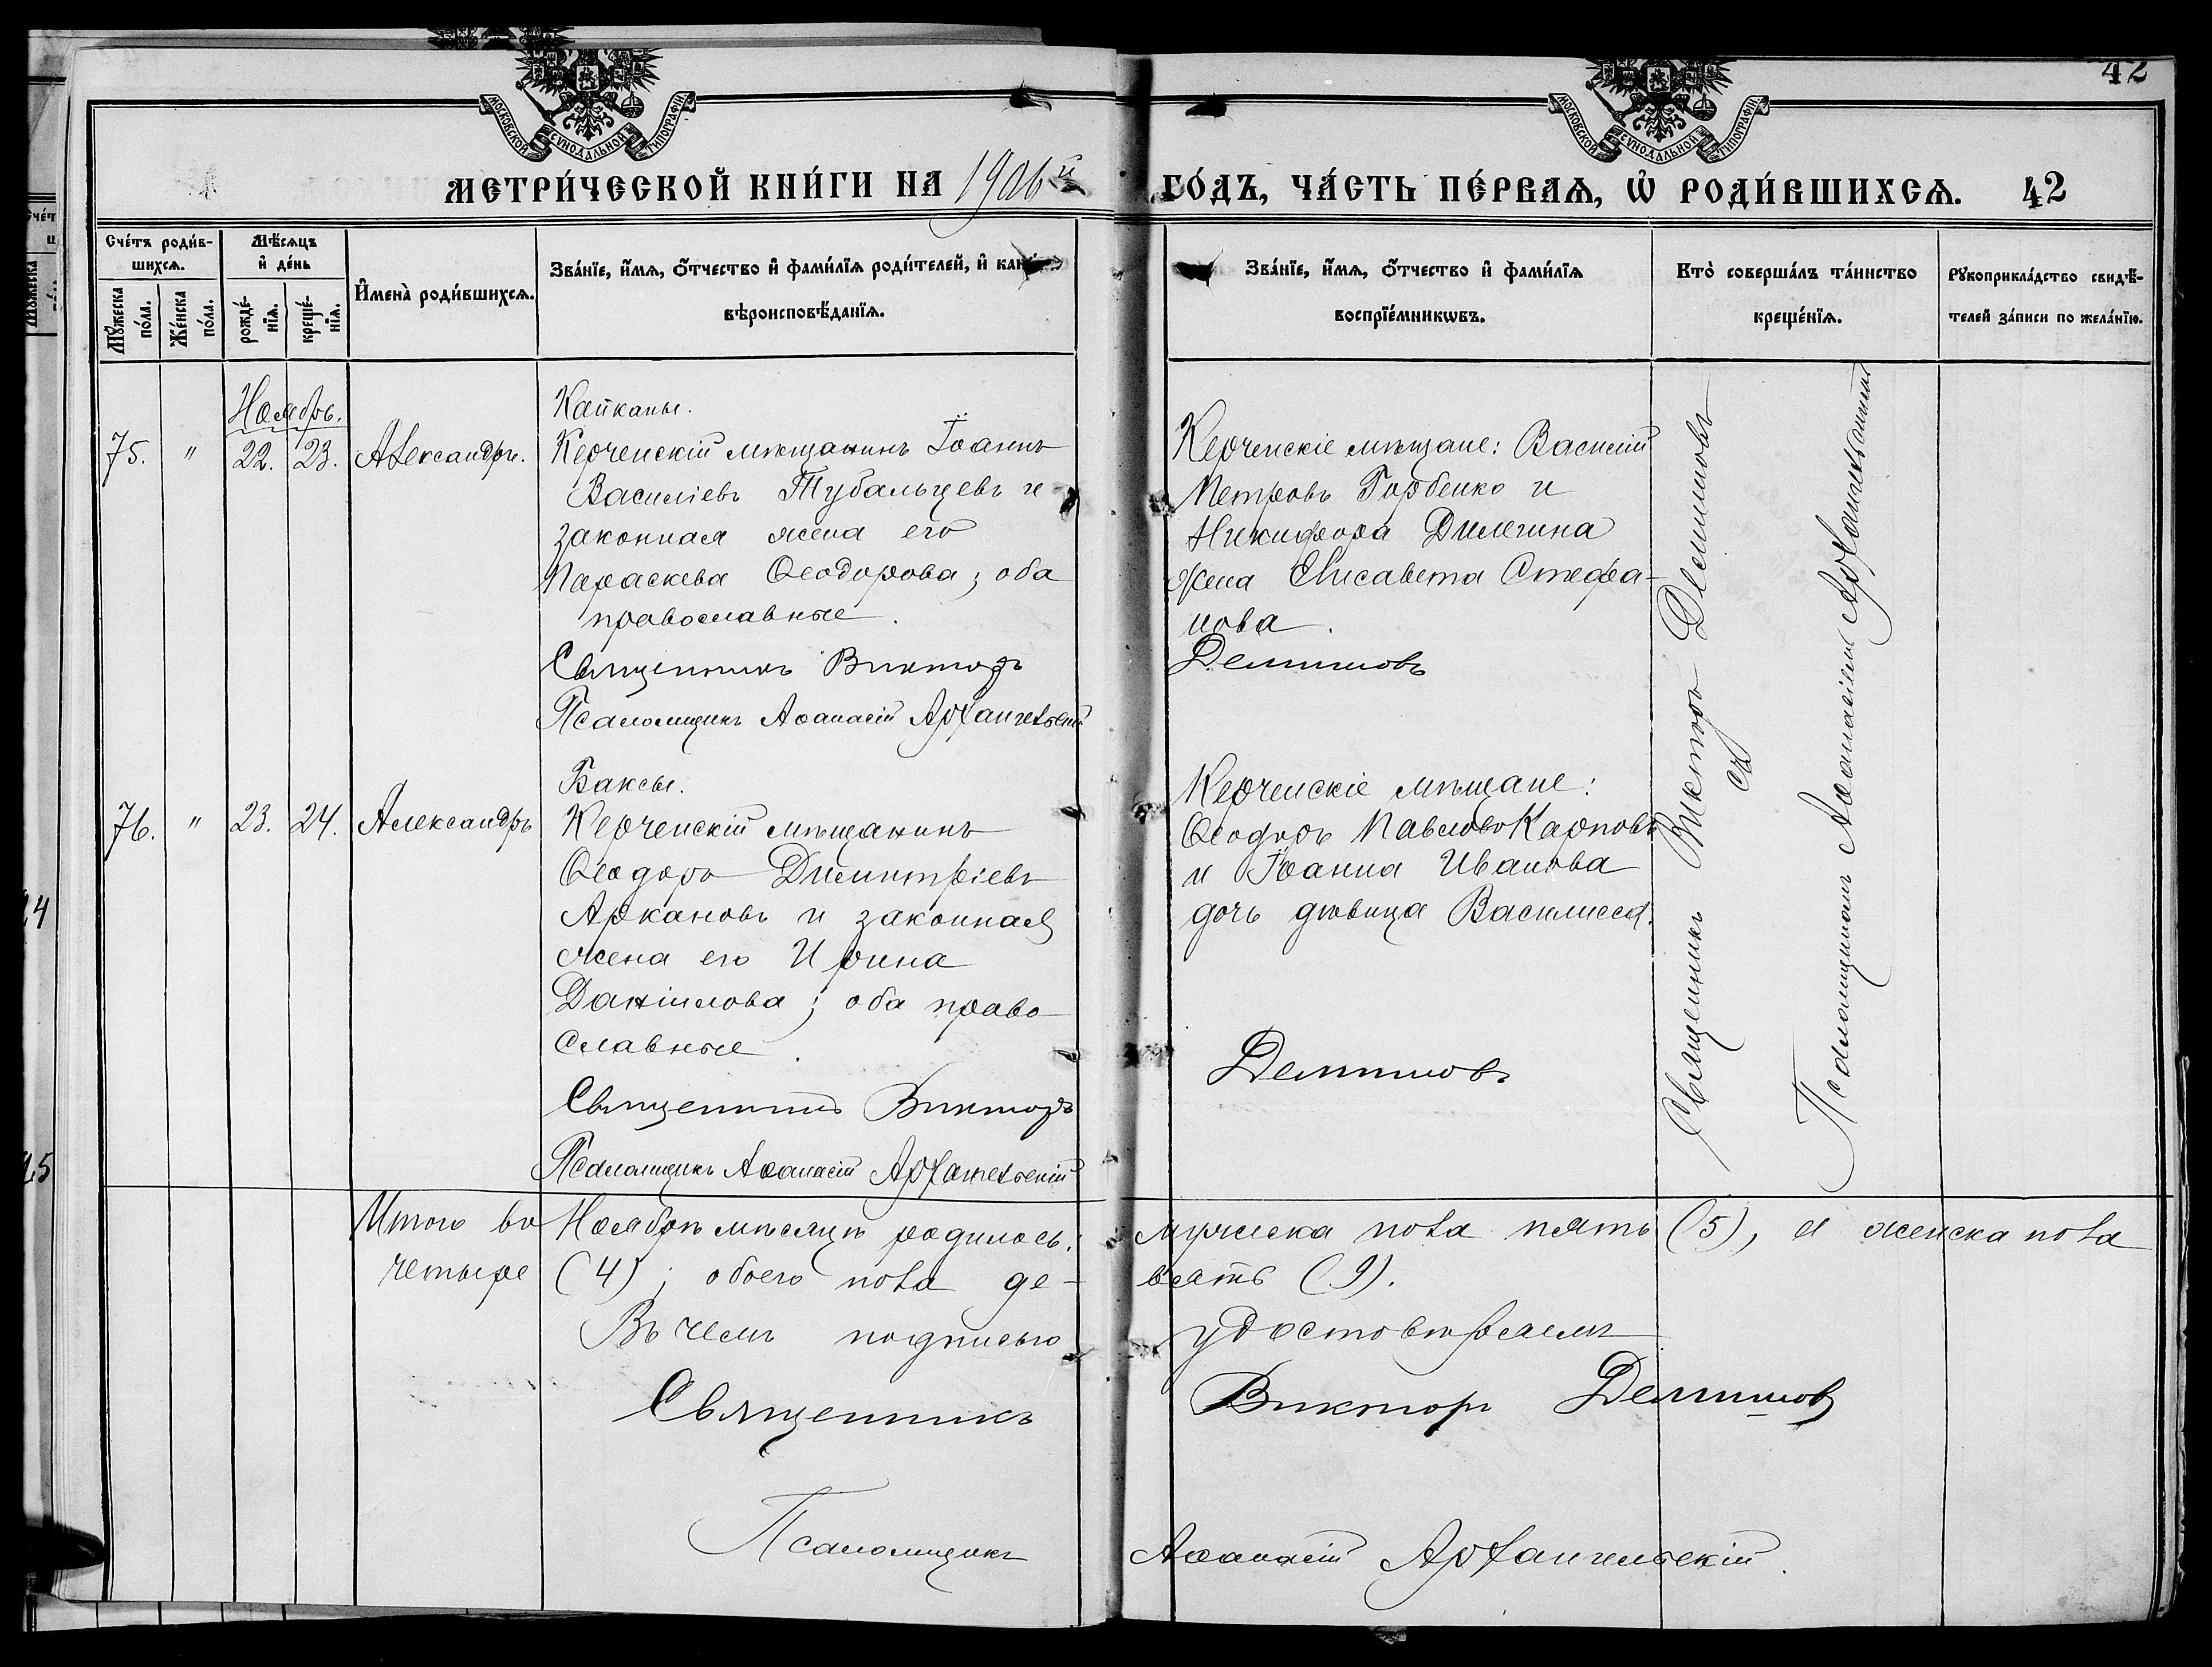 42
МОСКОВСКОЙ СѴНОДАЛЬНОЙ ТИПОГРАФІИ
МОСКОВСКОЙ СѴНОДАЛЬНОЙ ТИПОГРАФІИ
МЕТРИ́ЧЕСКОЙ КНИ́ГИ НА 1906й ГО́ДЪ, ЧА́СТЬ ПЕ́РВАѦ, Ѡ҆ РОДИ́ВШИХСѦ. 42
Сче́тъ роди́в-
шихсѧ.
Мꙋ́жеска по́ла.
Же́нска по́ла.
Мѣ́сѧцъ
и҆ де́нь
рожде́-
нїѧ.
креще́-
нїѧ.
И҆мена̀ роди́вшихсѧ.
Зва́нїе, и҆́мѧ, ѻ҆́тчество и҆ фами́лїѧ роди́телей, и҆
вѣроисповѣ́данїѧ.
Зва́нїе, и҆́мѧ, ѻ҆́тчество и҆ фами́лїѧ
воспрїе́мникѡвъ.
Кто̀ соверша́лъ та́инство
креще́нїѧ.
Рꙋкоприкла́дство свидѣ́-
телей за́писи по жела́нїю.
Ноябрь.
75. " 22. 23. Александръ.
Капканы.
Керченскій мѣщанинъ Іоаннъ
Василіевъ Тубальцевъ и
законная жена его
Параскева Ѳеодорова; оба
православные.
Священникъ Викторъ
Псаломщикъ Аѳанасій Архангельскій
Керченскіе мѣщане: Василій
Петровъ Горбенко и
Никифора Дилегина
жена Елисавета Стефа-
нова.
Демишовъ
76. " 23. 24. Александръ
Баксы.
Керченскій мѣщанинъ
Ѳеодоръ Димитріевъ
Аркановъ и законная
жена его Ирина
Даніилова; оба право
славные.
Священникъ Викторъ
Псаломщикъ Аѳанасій Архангельскій
Керченскіе мѣщане:
Ѳеодоръ Павловъ Карповъ
и Іоанна Иванова
дочь дѣвица Василисса.
Демишовъ
Священникъ Викторъ Демишовъ
съ
Псаломщикомъ Аѳанасіемъ Архангельскимъ
Итого въ Ноябрѣ мѣсяцѣ родилось: мужеска пола пять (5), и женска пола
четыре (4); обоего пола де-вять (9).
Въ чемъ подписью удостовѣряемъ
Священникъ Викторъ Демишовъ
Псаломщикъ Аѳанасій Архангельскій.